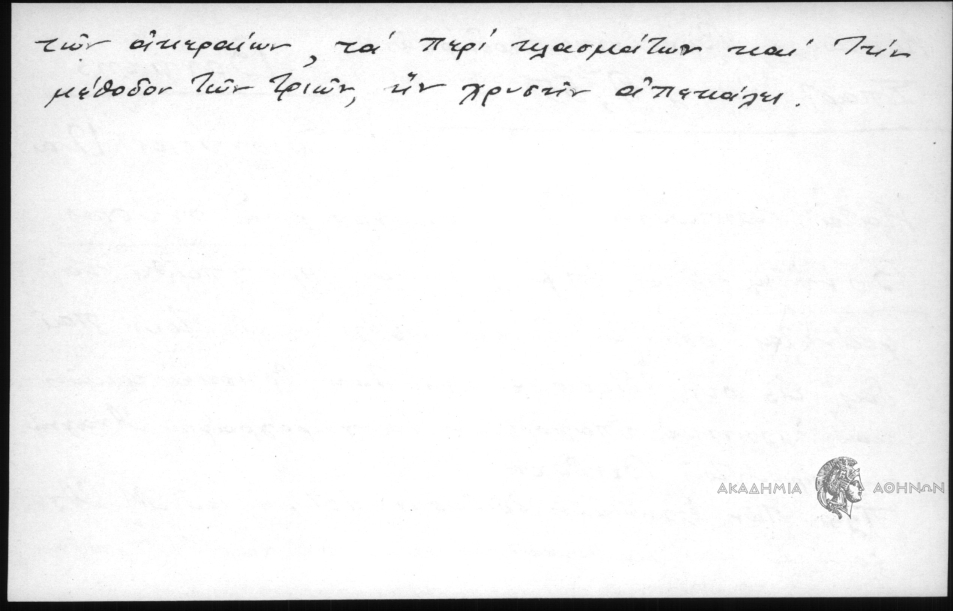 τῶν ἀκεραίων, τά περί κλασμάτων καί τήν
μέθοδον τῶν τριῶν, ἥν χρυσῆν ἀπεκάλει.
ΑΚΑΔΗΜΙΑ ΑΘΗΝΩΝ